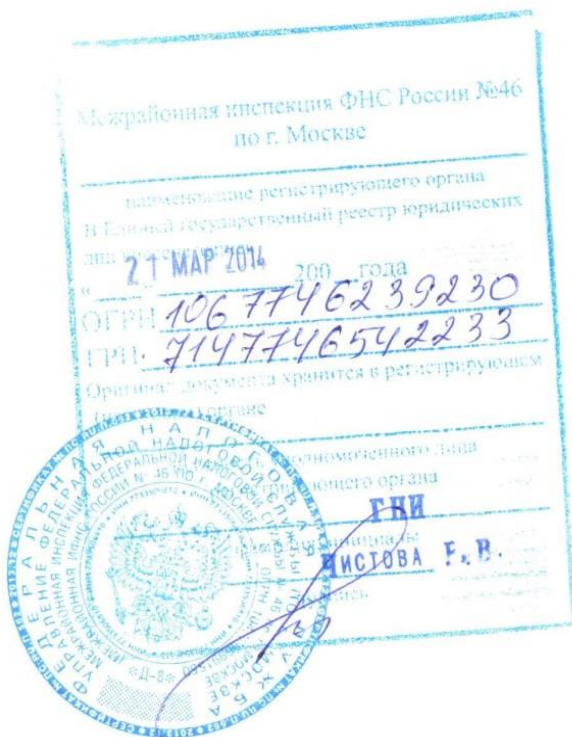 Межрайонная инспекция ФНС России №46
по г. Москве
наименование регистрирующего органа
В Единый государственный реестр юридических
лиц
« 21 МАР 2014 200 года
ОГРН 1067746239230
ГРН 7147746542233
Оригинал документа хранится в регистрирующем
органе
уполномоченного лица
регистрирующего органа
ГНИ
фамилия, инициалы
ЧИСТОВА Е.В.
подпись
ФЕДЕРАЛЬНАЯ НАЛОГОВАЯ СЛУЖБА
УПРАВЛЕНИЕ ФЕДЕРАЛЬНОЙ НАЛОГОВОЙ СЛУЖБЫ ПО Г. МОСКВЕ
МЕЖРАЙОННАЯ ИНСПЕКЦИЯ ФЕДЕРАЛЬНОЙ НАЛОГОВОЙ СЛУЖБЫ № 46